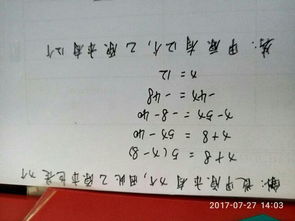 解:设甲原来有x个,因此乙原来也是x个
x+8=5(x-8)
x+8=5x-40
x-5x=-8-40
-4x=-48
x=12
答:甲原有12个,乙原来有12个
2017-07-27 14:03